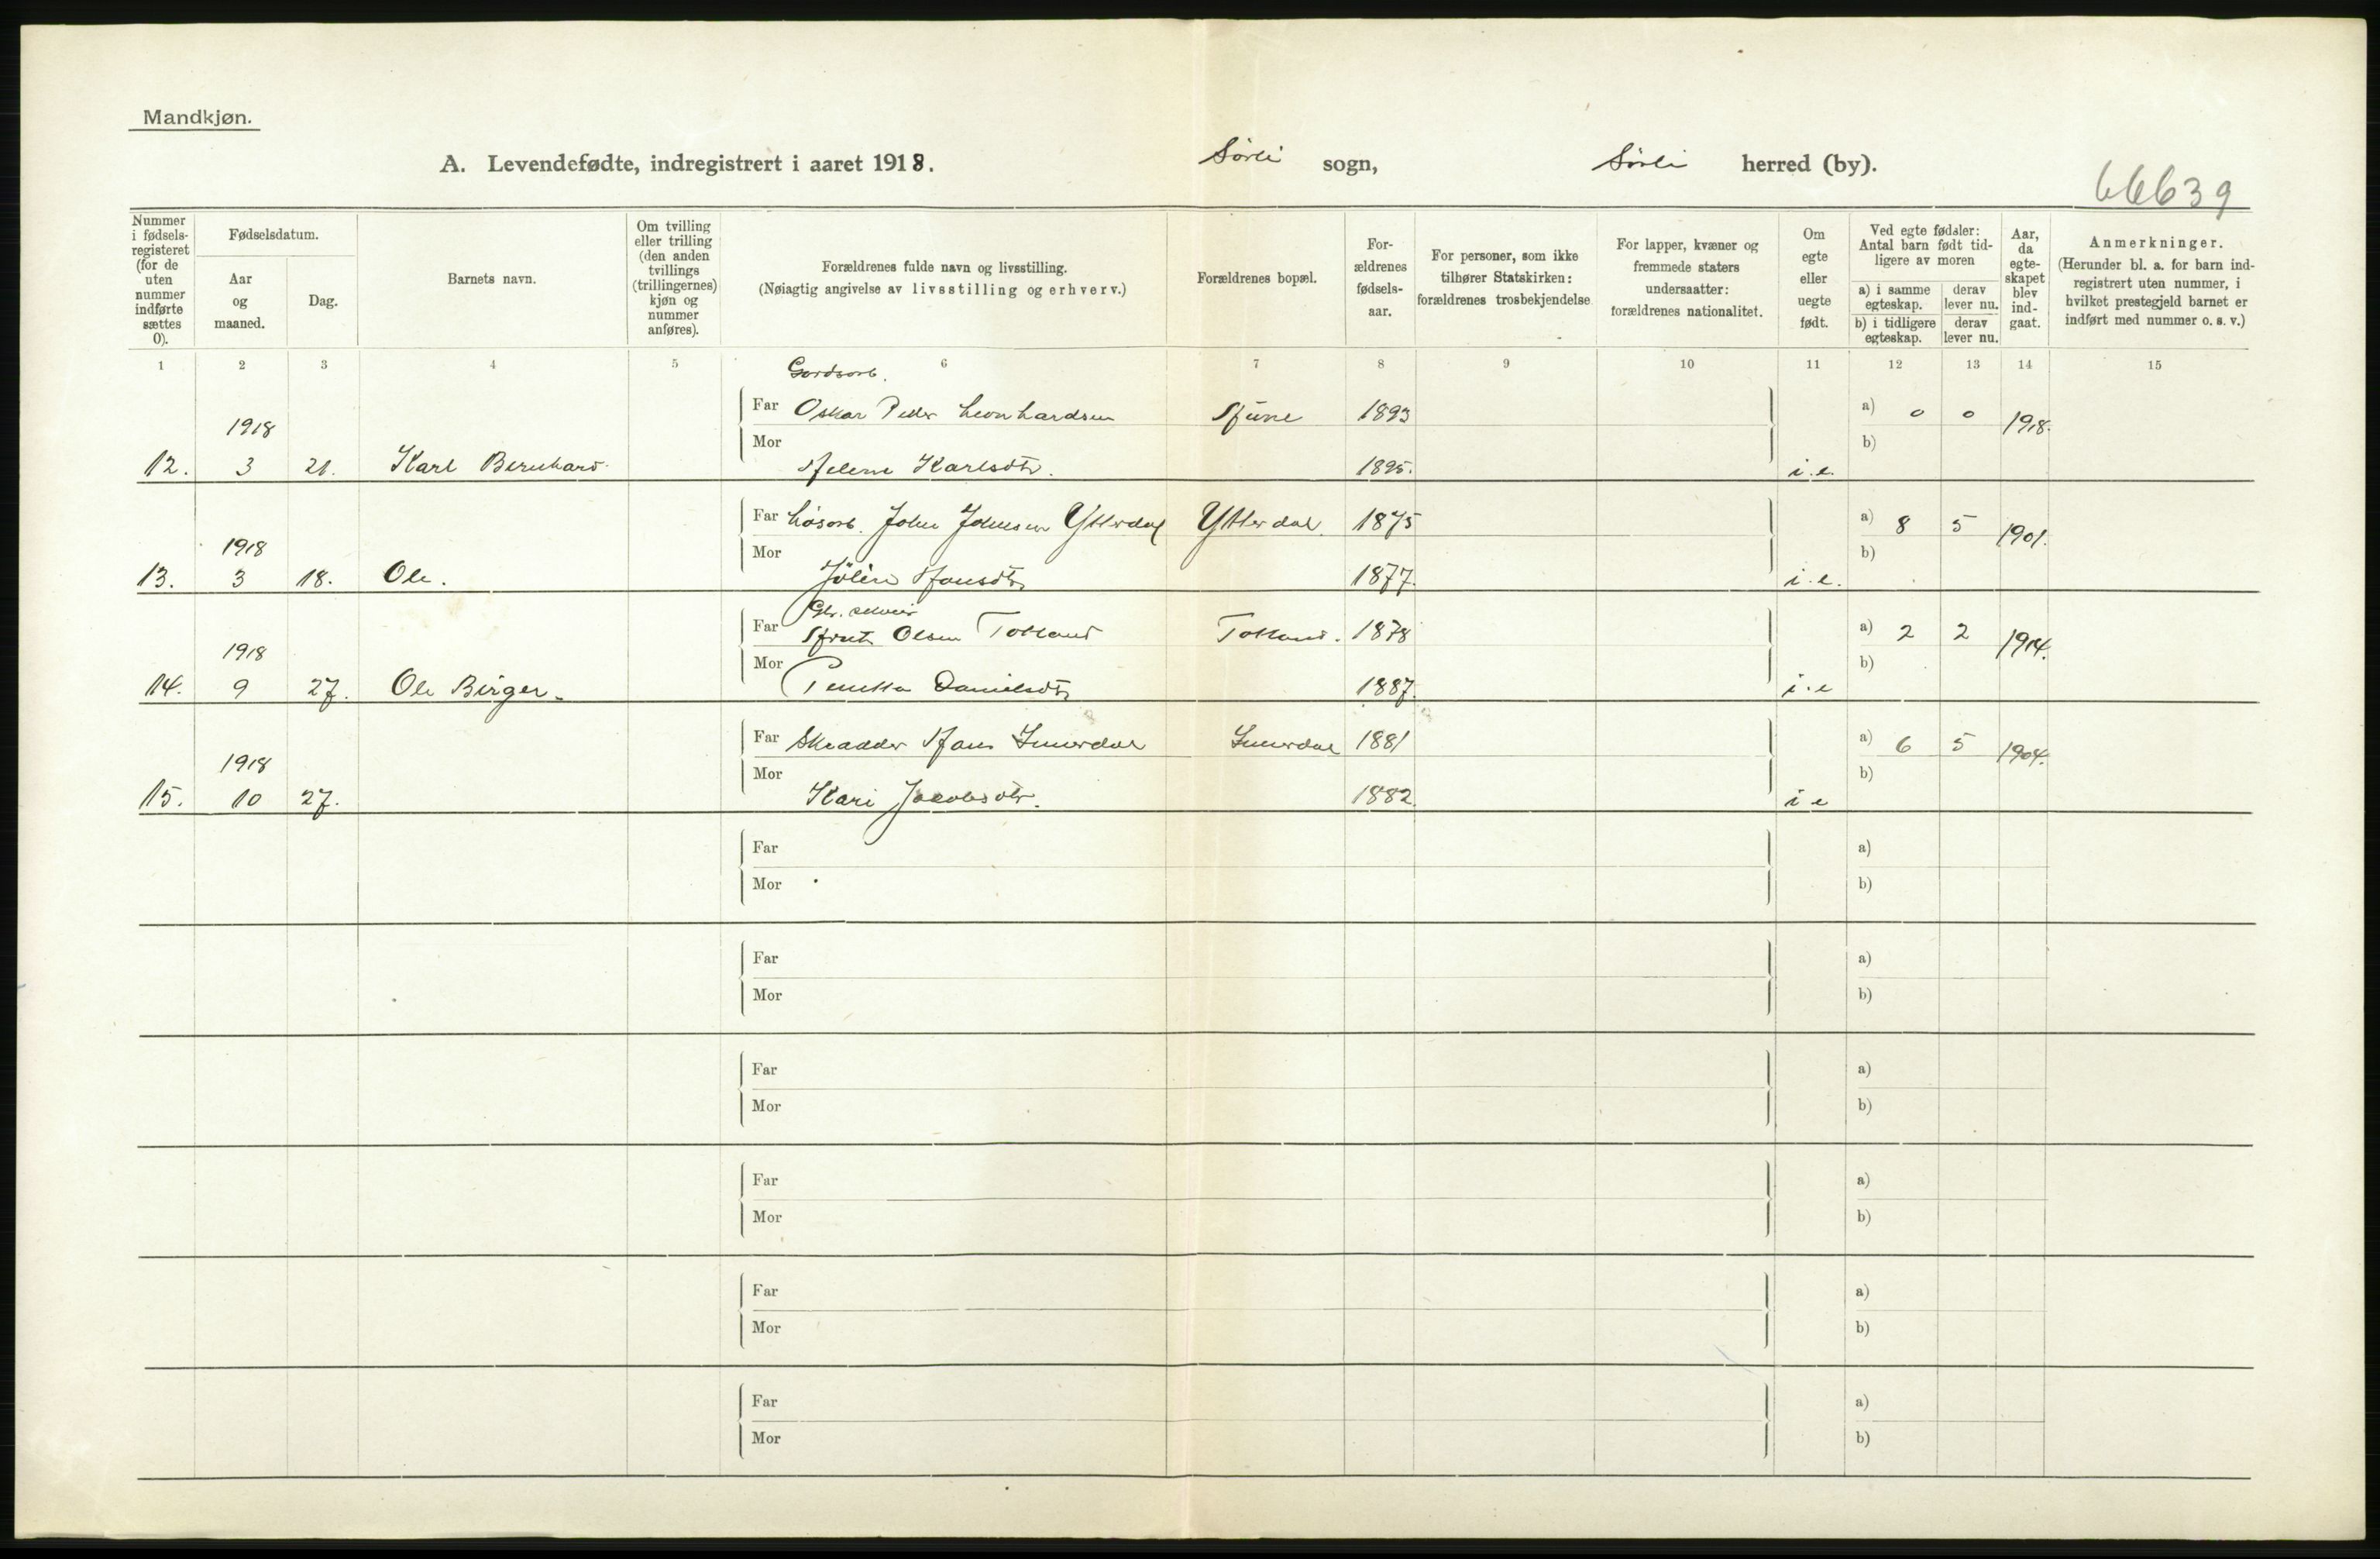 Mandkjøn.
A. Levendefødte, indregistrert i aaret 1918. Sørli sogn, Sørli herred (by).
66639
Nummer i fødsels-registeret (for de uten nummer indførte sættes 0).
Fødselsdatum.
Aar og maaned.
Dag.
Barnets navn.
Om tvilling eller trilling (den anden tvillings (trillingernes) kjøn og nummer anføres).
Forældrenes fulde navn og livsstilling.
(Nøiagtig angivelse av livsstilling og erhverv.)
Forældrenes bopæl.
For-ældrenes fødsels-aar.
For personer, som ikke tilhører Statskirken: forældrenes trosbekjendelse
For lapper, kvæner og fremmede staters undersaatter: forældrenes nationalitet.
Om egte eller uegte født.
Ved egte fødsler: Antal barn født tid-ligere av moren
a) i samme egteskap.
derav lever nu.
b) i tidligere egteskap.
derav lever nu.
Aar, da egte-skapet blev ind-gaat.
Anmerkninger.
(Herunder bl. a. for barn ind-registrert uten nummer, i hvilket prestegjeld barnet er indført med nummer o. s. v.)
1 2 3 4 5 6 7 8 9 10 11 12 13 14 15
Gordsarb.
Far Oskar Peder Leonhardsen 1893 a) 0 0 1918.
1918
Mor b)
12. 3 21. Karl Bernhard Helene Karlsdtr. 1895. i.e.
Far Løsarb. John Johnsen Ytterdal Ytterdal. 1875 a) 8 5 1901.
1918
Mor b)
13. 3 18. Ole. Jøline Hansdtr 1877. i.e.
Far Olsen Totland Totland. 1878 a) 2 2 1914.
1918
Mor b)
14. 9 27. Ole Birger. Danielsdtr 1887. i.e
Far Skradder Hans Inderdal Inderdal 1881 a) 6 5 1904.
1918
Mor b)
15. 10 27. Kari Jacobsdtr. 1882. i e
Far a)
Mor b)
Far a)
Mor b)
Far a)
Mor b)
Far a)
Mor b)
Far a)
Mor b)
Far a)
Mor b)